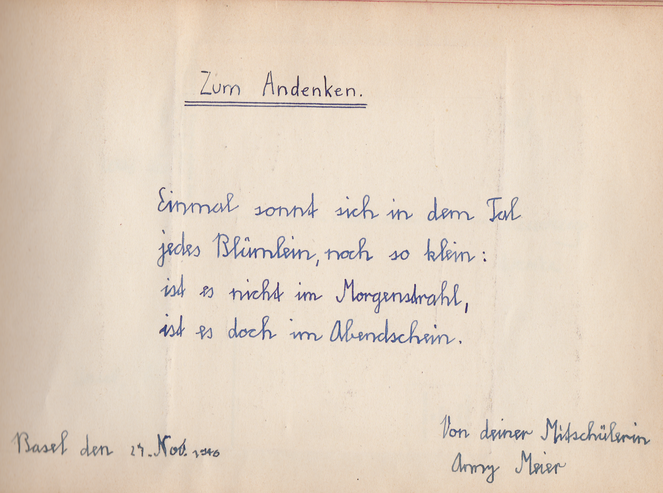 Zum Andenken.
Einmal sonnt sich in dem Tal
jedes Blümlein, noch so klein:
ist es nicht im Morgenstrahl,
ist es doch im Abendschein.
Von deiner Mitschülerin
Basel den Nov.
Meier